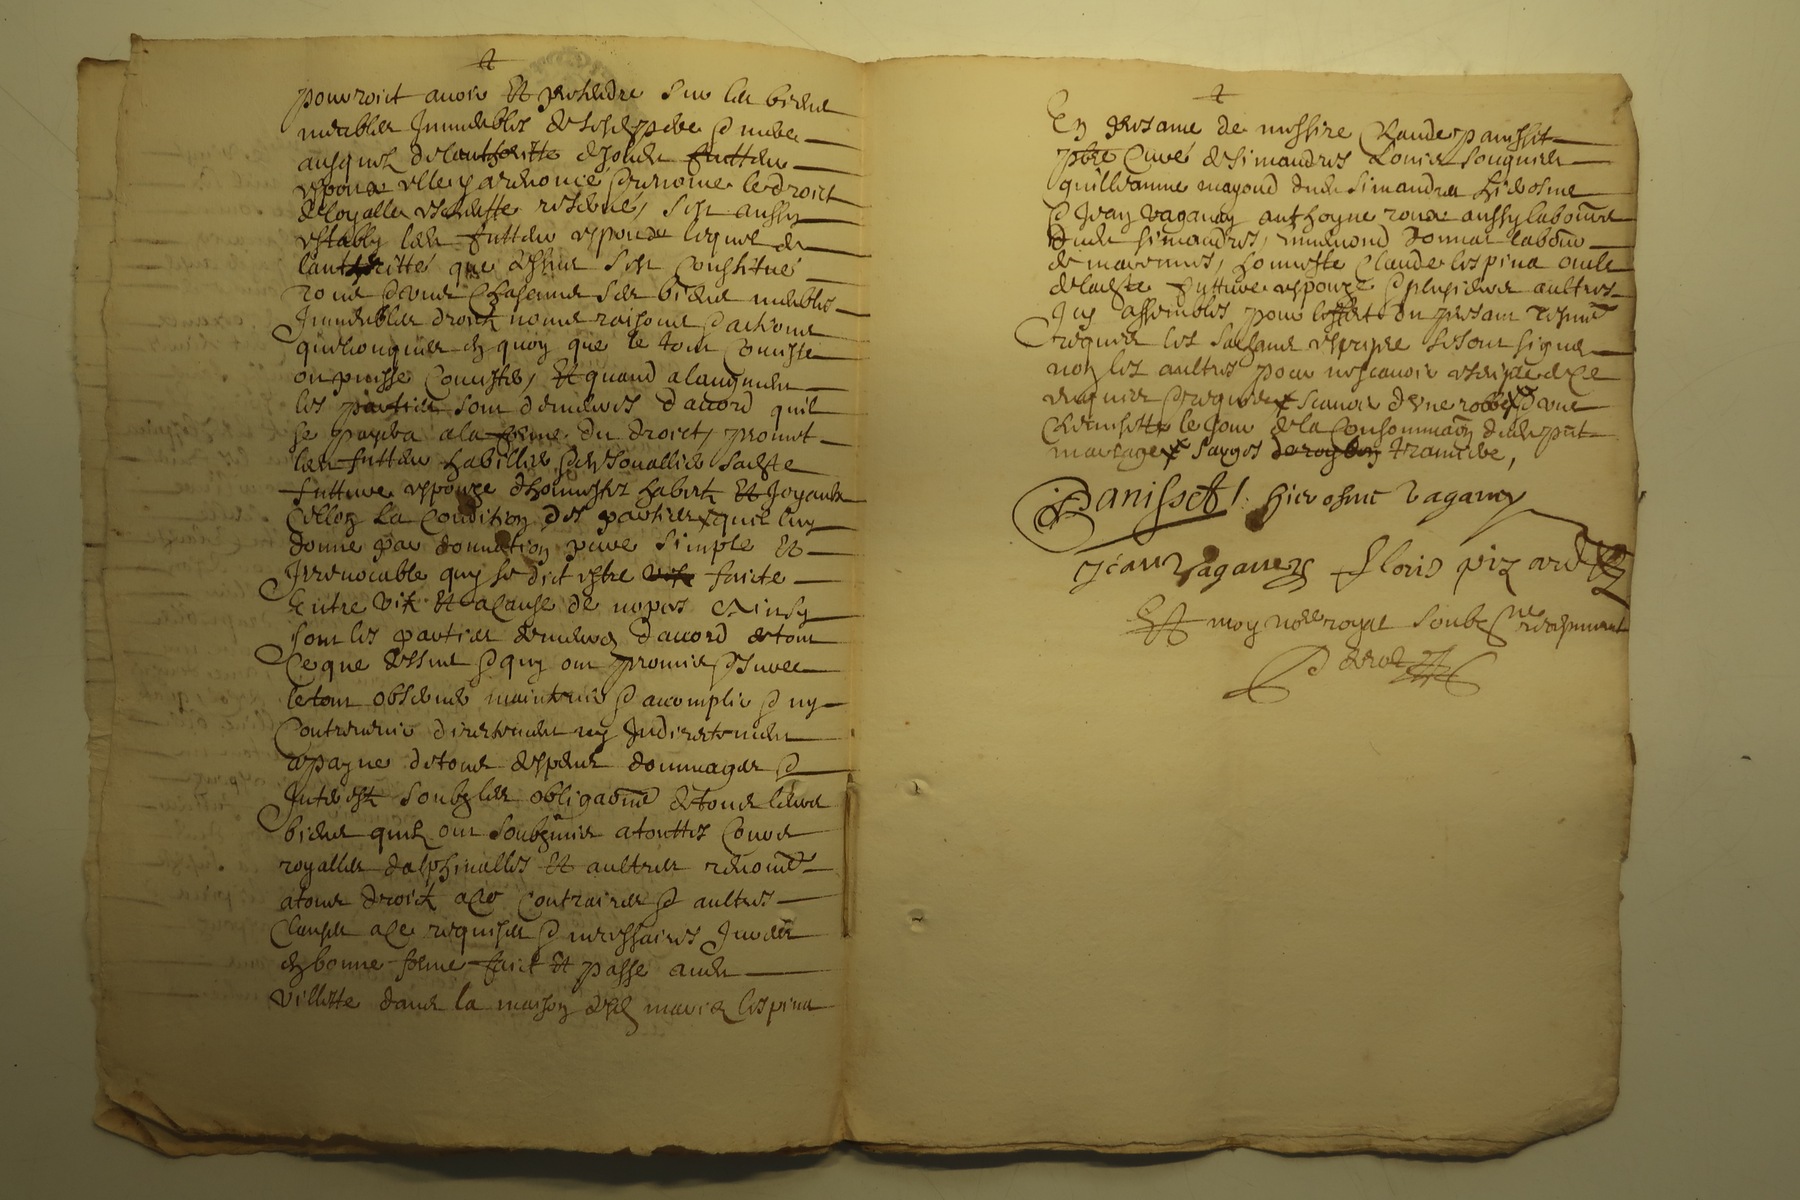 pourroict avoir Et pretendre sur les biens
meubles Immeubles de sesd pere & mere
ausquelz de lauthoritte desondit futteur
espoux elle y a renoncé & renonce le droict
de loyalle escheutte reservé, sest aussy
estably led futteur espoux lequel de
lauthoritté que dessus sest Constitué
tous & uns Chascuns ses biens meubles
Immeubles droictz noms raisons & actions
quelconques en quoy que le tout Consiste
ou puisse Consister, Et quand a laugment
les parties sont demeures daccord quil
se payera a la forme du droict, promet
led futteur habillier & enjouallier sadite
futture espouze dhonnestes habitz Et Joyaulx
Cellon La Condition des parties quil luy
donne par donnation pure simple Et
Irrevocable quy se dict estre faicte
Entre vifz Et a Cause de nopces Ainsy
sont les parties demeures daccord de tout
Ce que dessus & quy ont promis & Juree
le tout observer maintenir & accomplir & ny
Contrevenir directement ny Indirectement
a payne de tous despens dommages &
Interestz soubz les obligaons de tous leurs
biens quilz ont soubzmis a touttes Cours
royalles dalphinalles Et aultres renoncé
a tous droictz a Ce Contraires & aultres
Clauses a Ce requises & necessaires
en bonne forme faict Et passé aud
villette dans la maison de marie lespina
En presance de messire Claude panissit
pbre Curé de simandres Louis souquier
guillaume mayoud dud simandres hierosme
& Jean vaganay anthoyne roux aussy laboureurs
dud simandres, donnat laboureur
de marennes, honneste Claude lespina oncle
de ladite futture espouze & plusieurs aultres
Icy assembles pour leffect du presant tesmoins
requis les sachant escripre se sont signes
non les aultres pour ne scavoir escripre de Ce
enquis & requis scavoir dune robbe & dune
Chemisette le jour de la Consommation dud pnt
mariage
Panisset / hierosme Vaganey
Jean Vaganey Floris pizard
Et moy notre royal soubzne recepvant